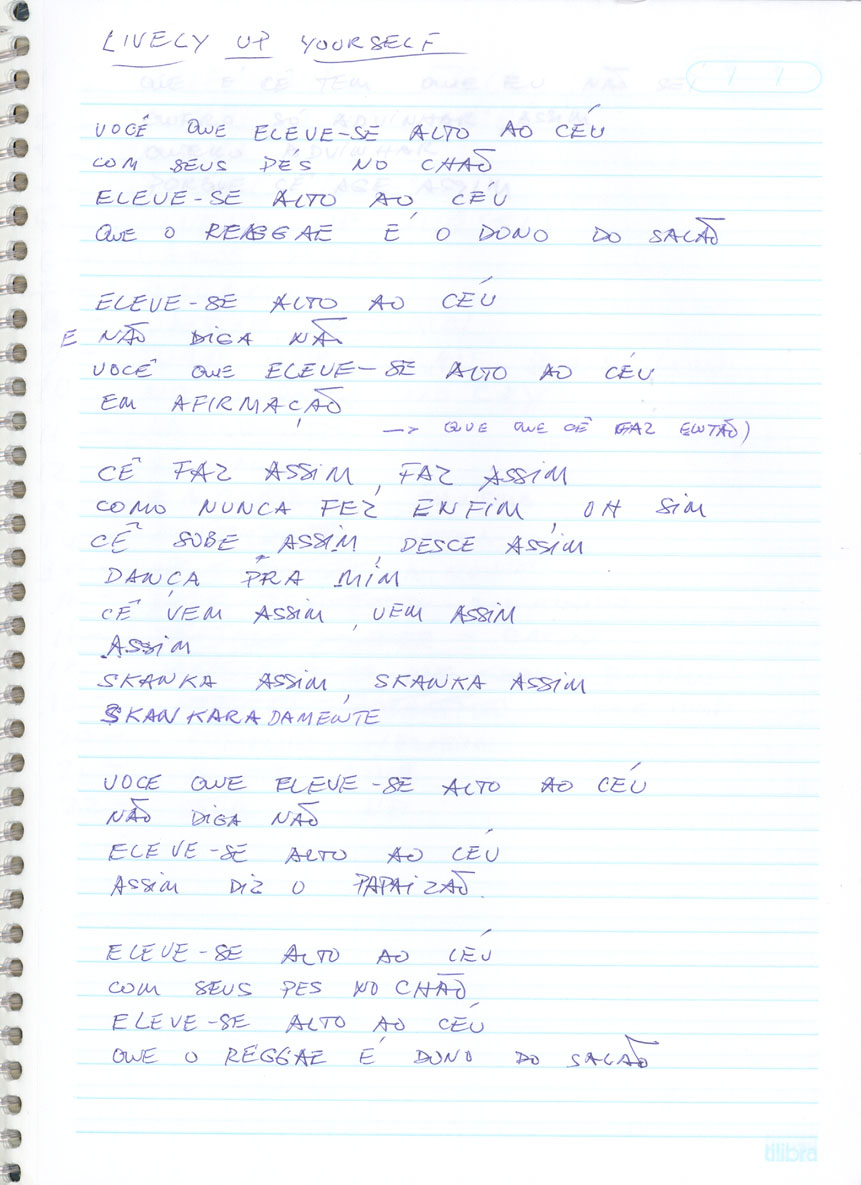 LIVELY UP YOURSELF
VOCÊ QUE ELEVE-SE ALTO AO CÉU
COM SEUS PÉS NO CHÃO
ELEVE-SE ALTO AO CÉU
QUE O REAGGAE É O DONO DO SALÃO
ELEVE-SE ALTO AO CÉU
E NÃO DIGA NÃO
VOCÊ QUE ELEVE-SE ALTO AO CÉU
EM AFIRMAÇÃO
-> QUE QUE CÊ FAZ ENTÃO)
CÊ FAZ ASSIM, FAZ ASSIM
COMO NUNCA FEZ ENFIM, OH SIM
CÊ SOBE ASSIM, DESCE ASSIM
DANÇA PRA MIM
CÊ VEM ASSIM, VEM ASSIM
ASSIM
SKANKA ASSIM, SKANKA ASSIM
SKANKARADAMENTE
VOCE QUE ELEVE-SE ALTO AO CÉU
NÃO DIGA NÃO
ELEVE-SE ALTO AO CÉU
ASSIM DIZ O PAPAIZÃO.
ELEVE-SE ALTO AO CÉU
COM SEUS PES NO CHÃO
ELEVE-SE ALTO AO CÉU
QUE O REGGAE É DONO DO SALÃO
tilibra